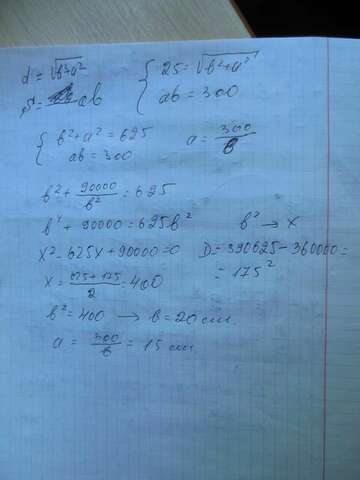 d = √b²+a²
S = ab
{ 25 = √b²+a²
ab = 300
{ b² + a² = 625
ab = 300
a = 300/b
b² + 90000/b² = 625
b⁴ + 90000 = 625b²
b² → x
x² - 625x + 90000 = 0
D = 390625 - 360000 =
= 175²
x = 625 + 175 / 2 = 400
b² = 400 → b = 20 см.
a = 300/b = 15 см.